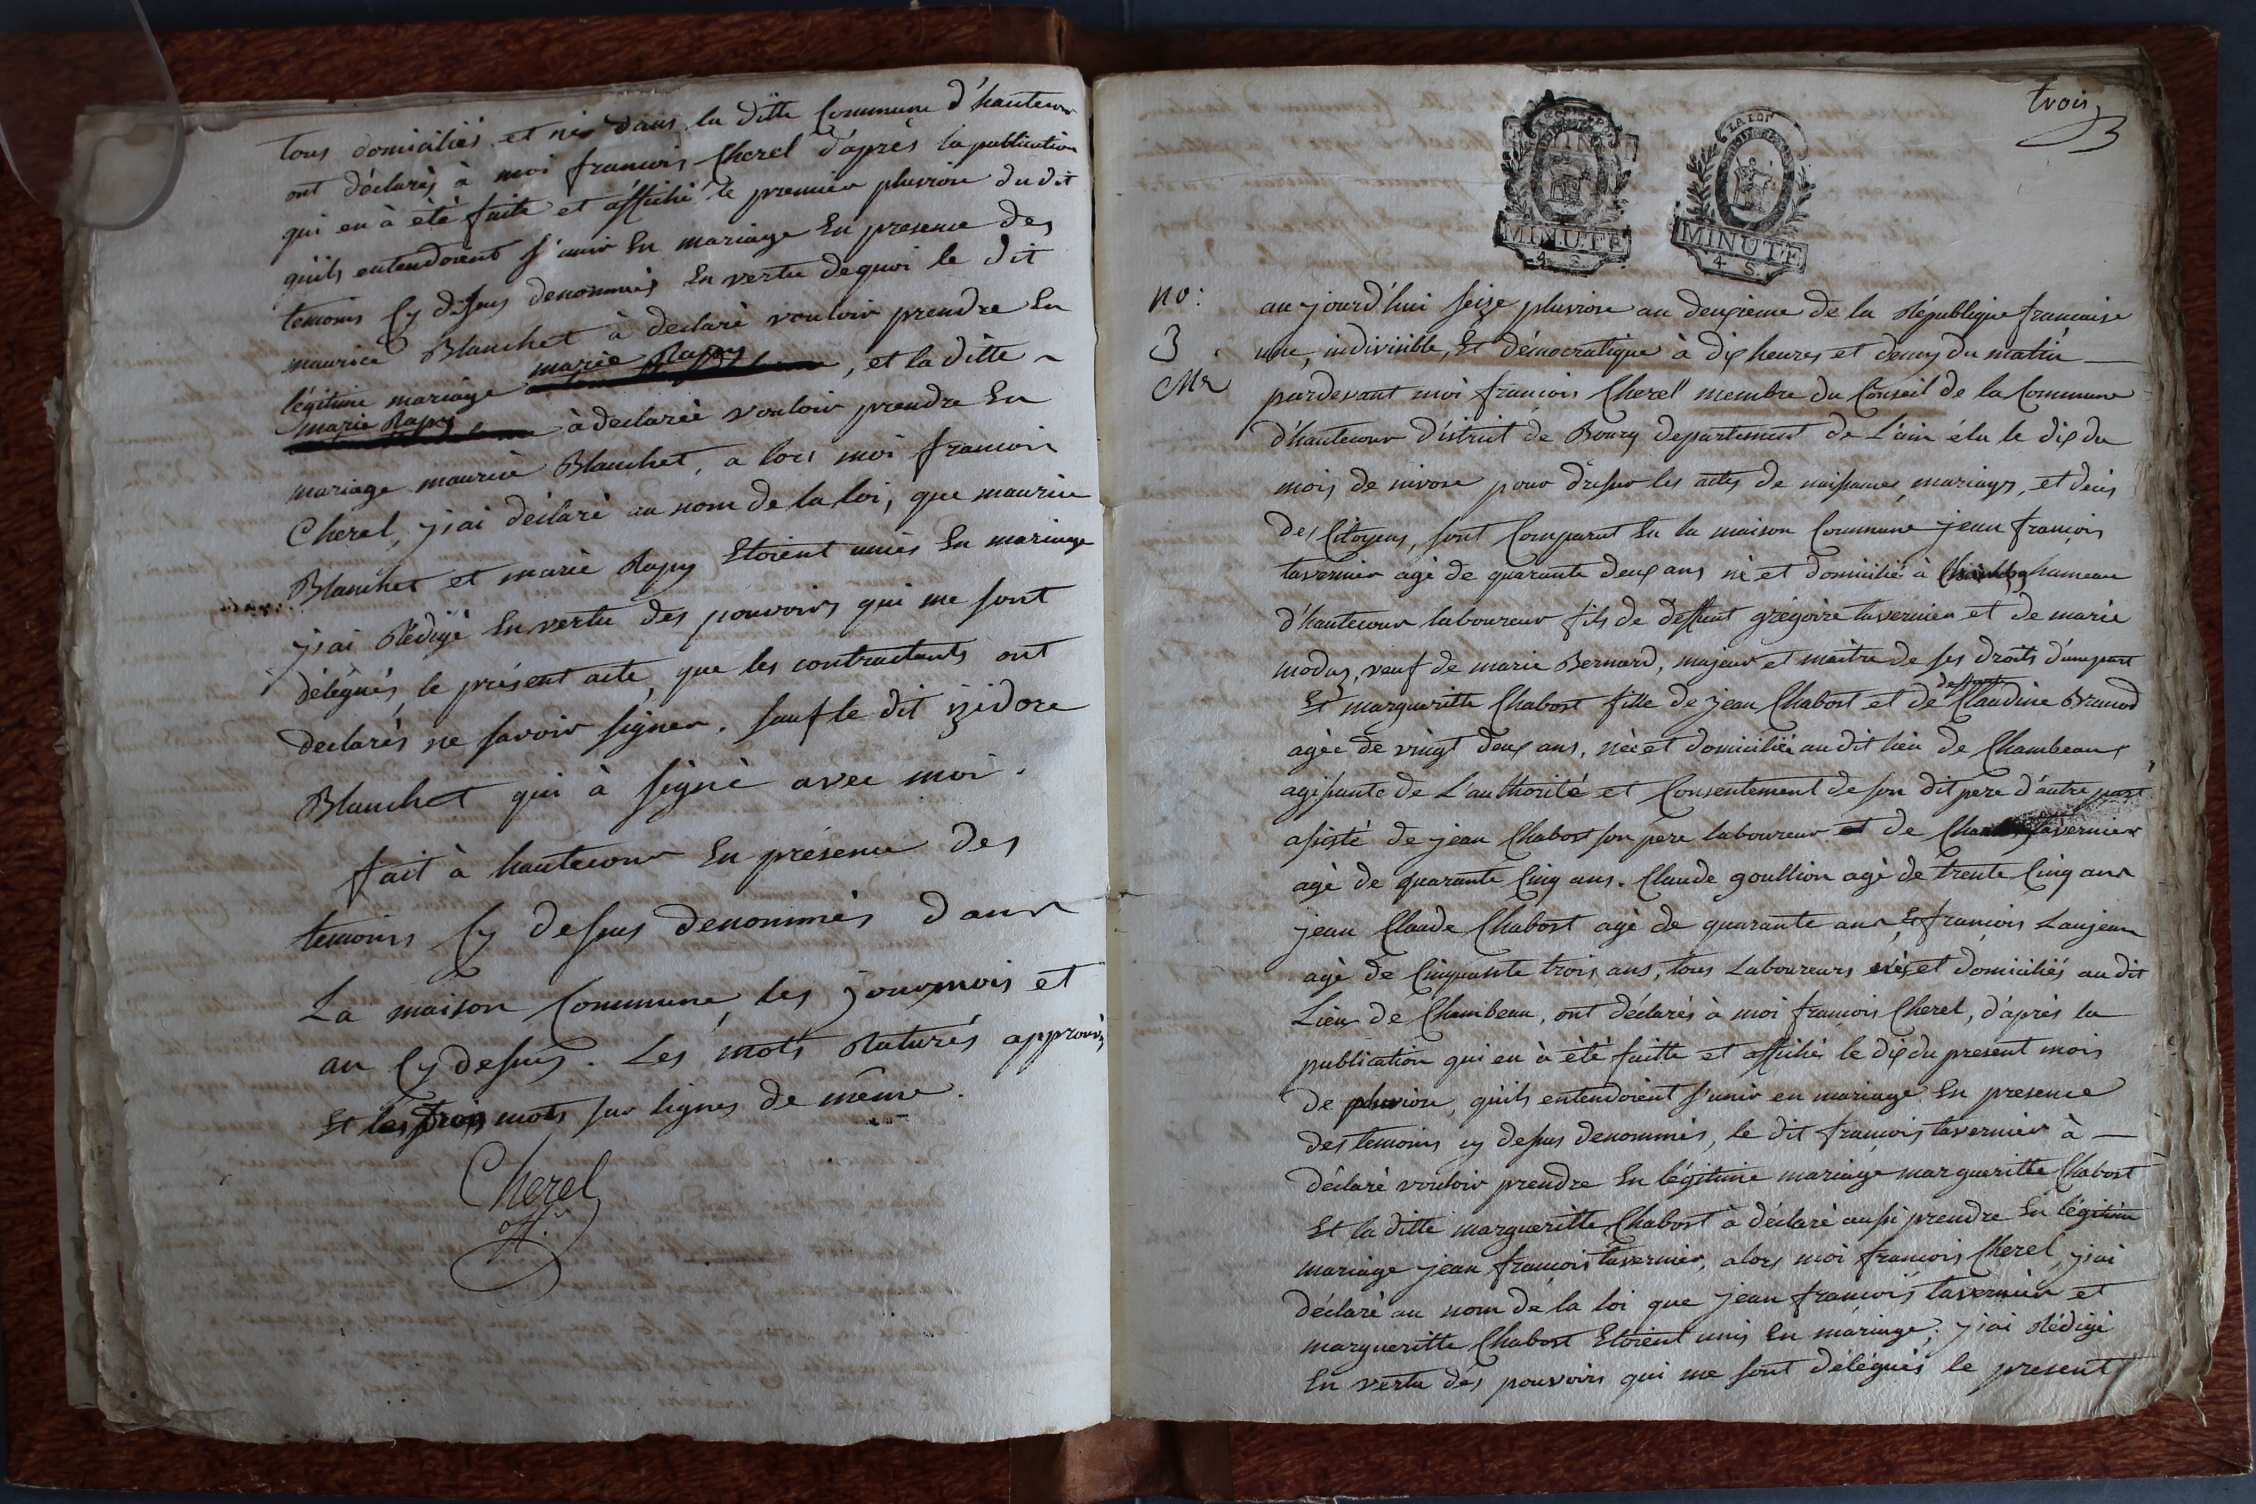 tous domiciliés et né dans la ditte Commune d'hautecour
ont déclarés à moi francois Cherel d'après la publication
qui en à été faite et affiché le premier pluviose du dit
qu'ils entendoient s'unir En mariage En presence des
temoins Cy dessus denommés En vertu dequoi le dit
maurice Blanchet à declaré vouloir prendre En
légitime mariage marie Rapy, et la ditte
marie Rapy à declarée vouloir prendre En
mariage maurice Blanchet, a lors moi francois
Cherel, j'ai déclaré au nom de la loi, que maurice
Blanchet et marie Rapy Etoient unies En mariage
j'ai Rédigé En vertu des pouvoirs qui me sont
délégués, le présent acte, que les contractants ont
declarés ne savoir signer. sauf le dit izidore
Blanchet qui à signé avec moi.
fait à hautecour En présence des
temoins Cy dessus denommés dans
La maison Commune, les jour mois et
an Cy dessus. Les mots Raturés approuvés
Et les trois mots sur lignes de même.
Cherel
trois
3
LA LOI
MINUTE
4. S.
MINUTE
4. S.
no:
3.
Mr
aujourd'hui seize pluviose an deuxieme de la République francaise
une, indivisible, Et démocratique à dix heures et demy du matin
pardevant moi francois Cherel membre du Conseil de la Commune
d'hautecour district de Bourg departement de L'ain élu le dix du
mois de nivose pour dresser les actes de naissances, mariages, et décès
des Citoyens, sont Comparut En la maison Commune jean francois
tavernier agé de quarante deux ans né et domicilié à hameau
d'hautecour laboureur fils de deffunt grégoire tavernier et de marie
modas, veuf de marie Bernard, majeur et maitre de ses droits d'une part
Et margueritte Chabost fille de jean Chabost et de deffunte Claudine Brunod
agée de vingt deux ans, née et domiciliée au dit lieu de Chambeau,
agissante de L'authorité et Consentement de son dit pere d'autre part
assisté de jean Chabost son pere laboureur et de tavernier
agé de quarante Cinq ans. Claude goullion agé de trente Cinq ans
jean Claude Chabost agé de quarante ans, Et francois Laujean
agé de Cinquante trois ans, tous Laboureurs nés et domiciliés au dit
Lieu de Chambeau, ont déclarés à moi francois Cherel, d'après la
publication qui en à été faitte et affiché le dix du present mois
de pluviose, qu'ils entendoient s'unir en mariage En presence
des temoins cy dessus denommés, le dit francois tavernier à
déclaré vouloir prendre En légitime mariage margueritte Chabost
Et la ditte margueritte Chabost à déclaré aussi prendre En légitime
mariage jean francois tavernier, alors moi francois Cherel, j'ai
déclaré au nom de la loi que jean francois tavernier et
margueritte Chabost Etoient unis En mariage; j'ai Rédigé
En vertu des pouvoirs qui me sont délégués le present